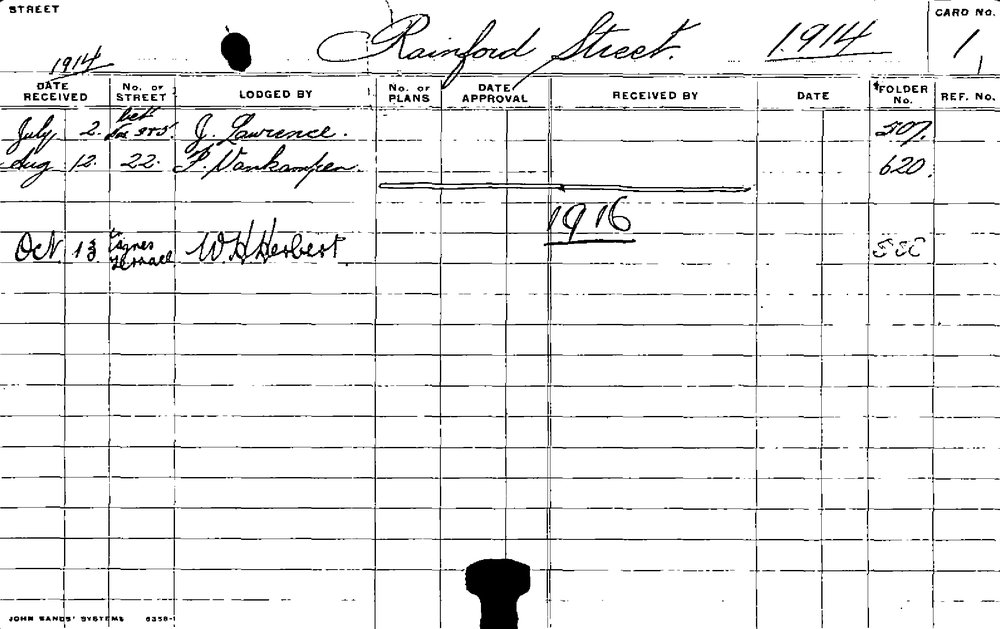 STREET
Rainford Street. 1914
CARD NO.
1
1914
DATE RECEIVED No. OF STREET LODGED BY No. OF PLANS DATE APPROVAL RECEIVED BY DATE FOLDER No. REF. No.
bet
July 2. J. Lawrence. 507.
Aug 12. 22. F. Vankampen. 620.
1916
Oct 13 Agnes Terrace W. H Herbert.
JOHN SANDS' SYSTEMS 6358-1